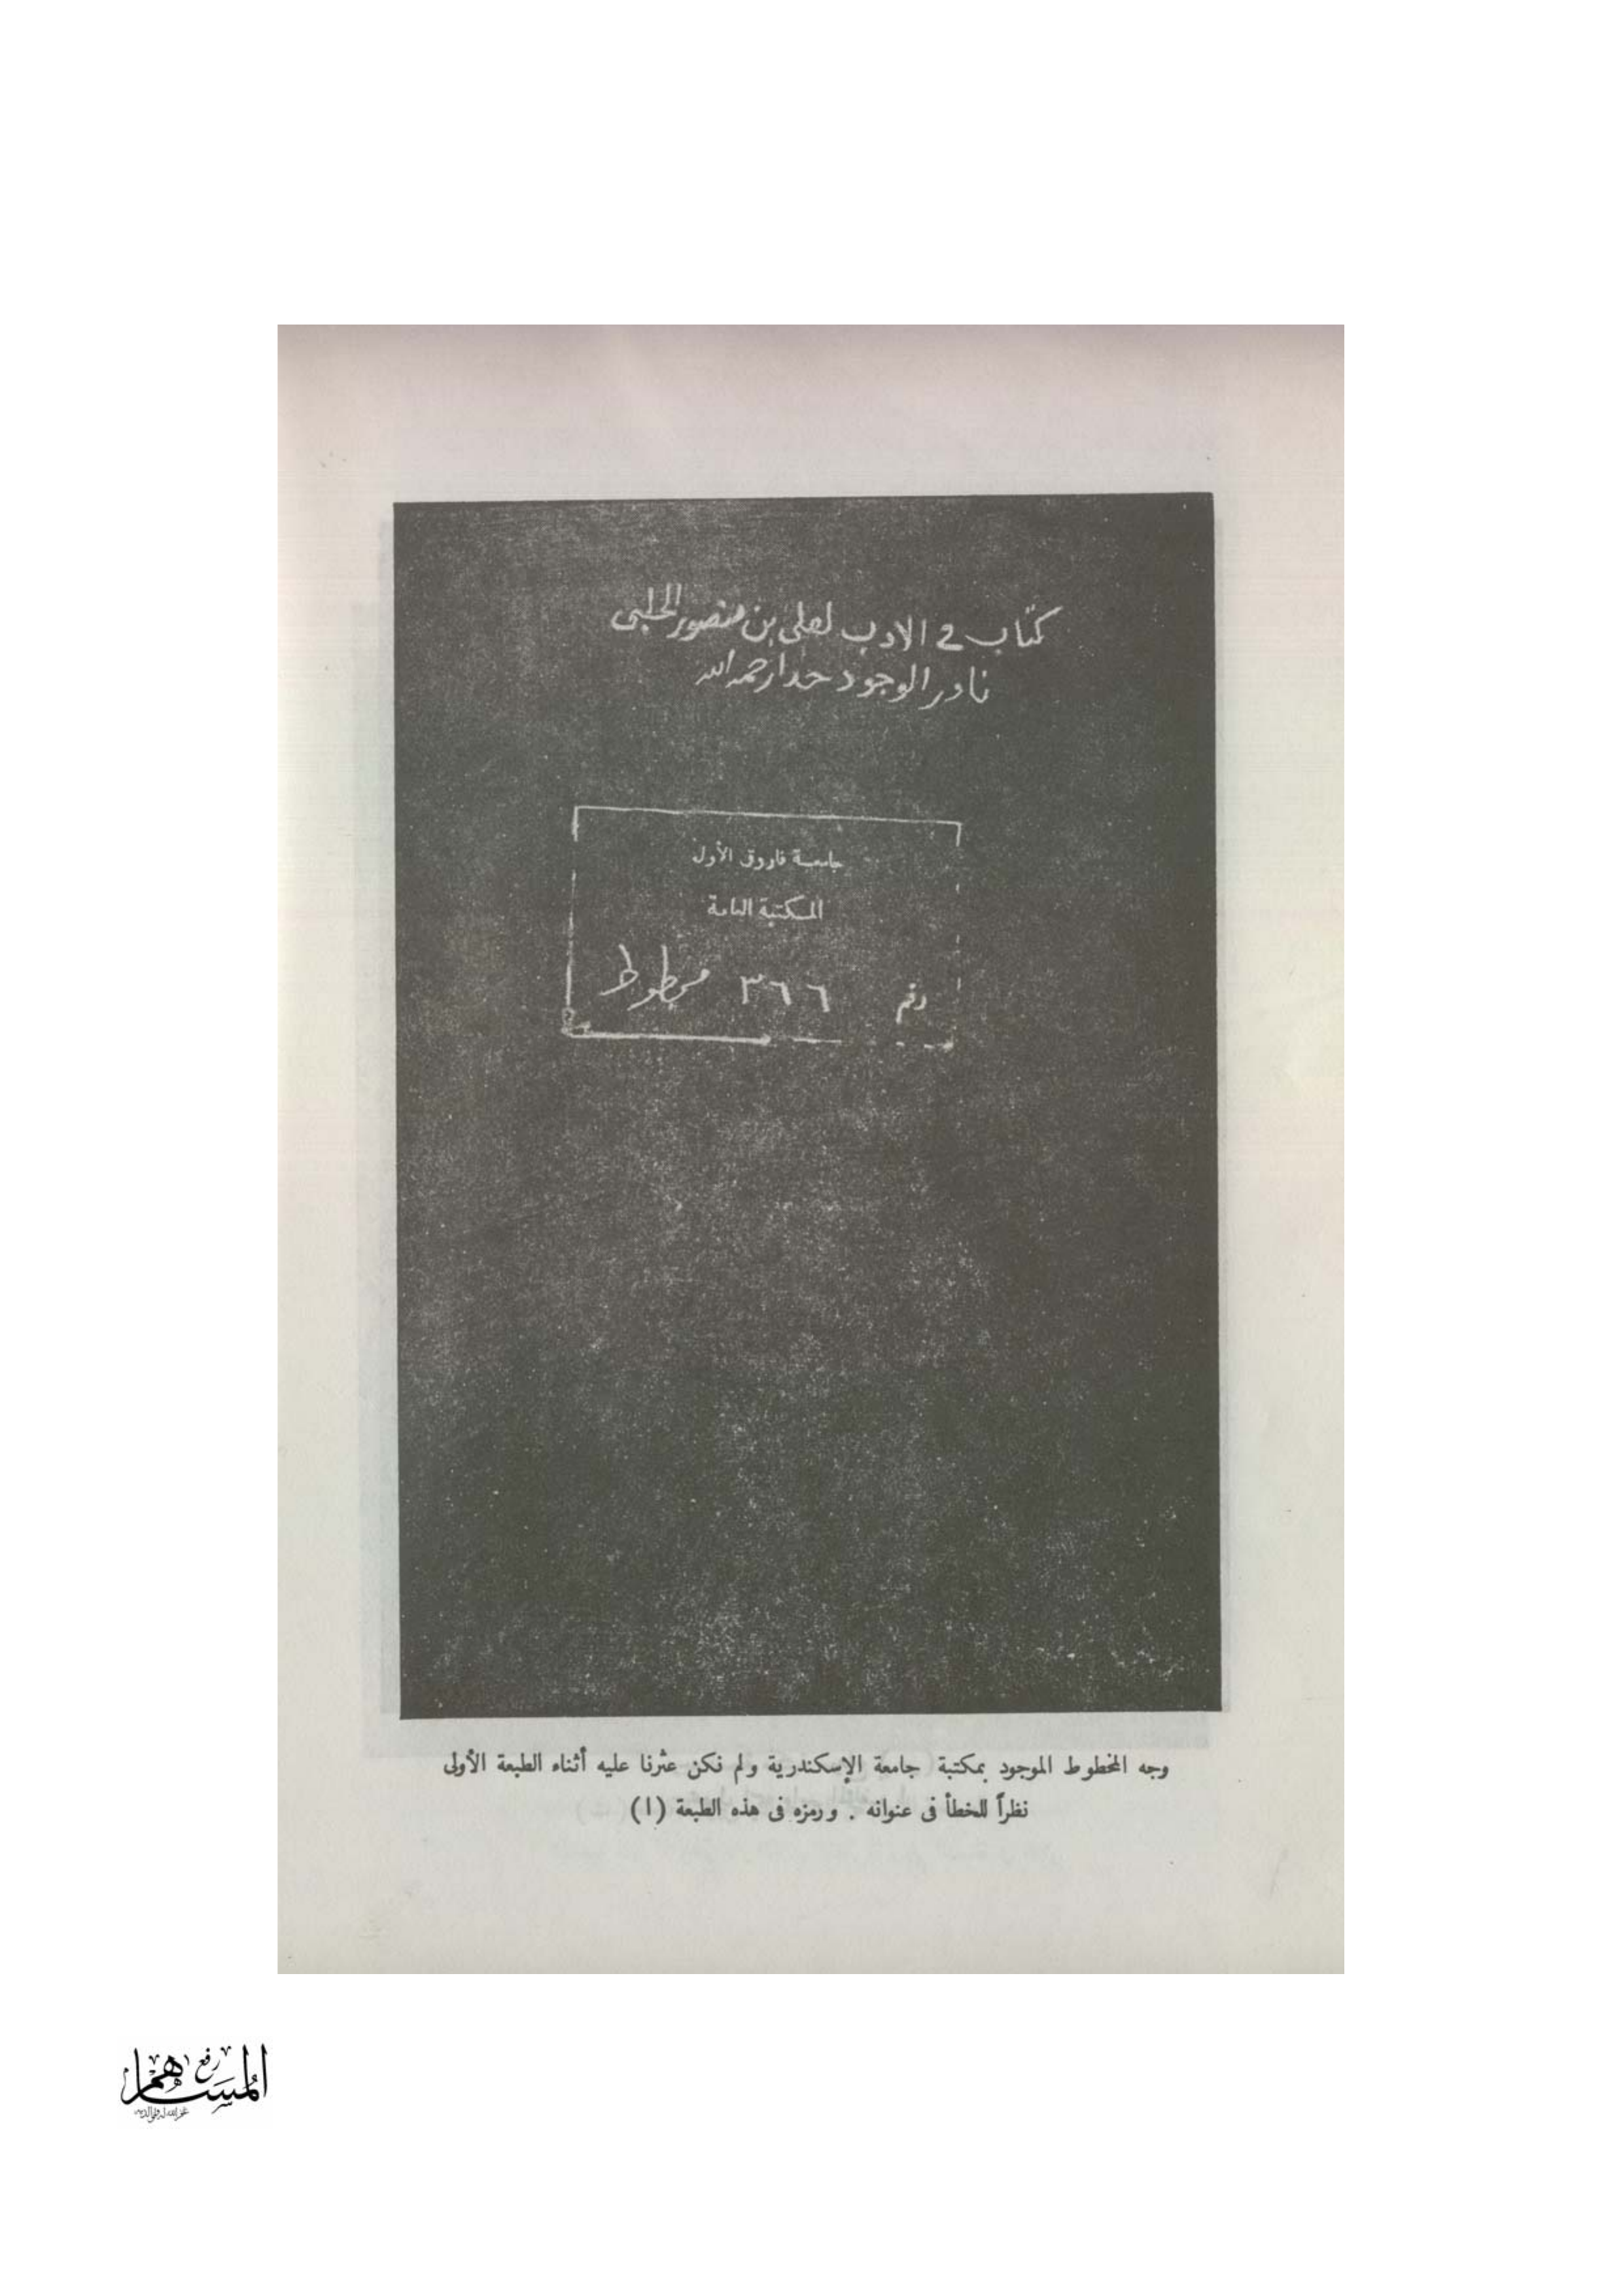 كتاب في الادب لعلى بن منصور الحلبى
نادر الوجود جدا رحمه الله
جامعة فاروق الأول
المكتبة العامة
رقم ٣٦٦ مخطوط
وجه المخطوط الموجود بمكتبة جامعة الإسكندرية ولم نكن عثرنا عليه أثناء الطبعة الأولى
نظراً للخطأ فى عنوانه . ورمزه فى هذه الطبعة (ا)
رفع
المساهم
غفر الله له ولوالديه